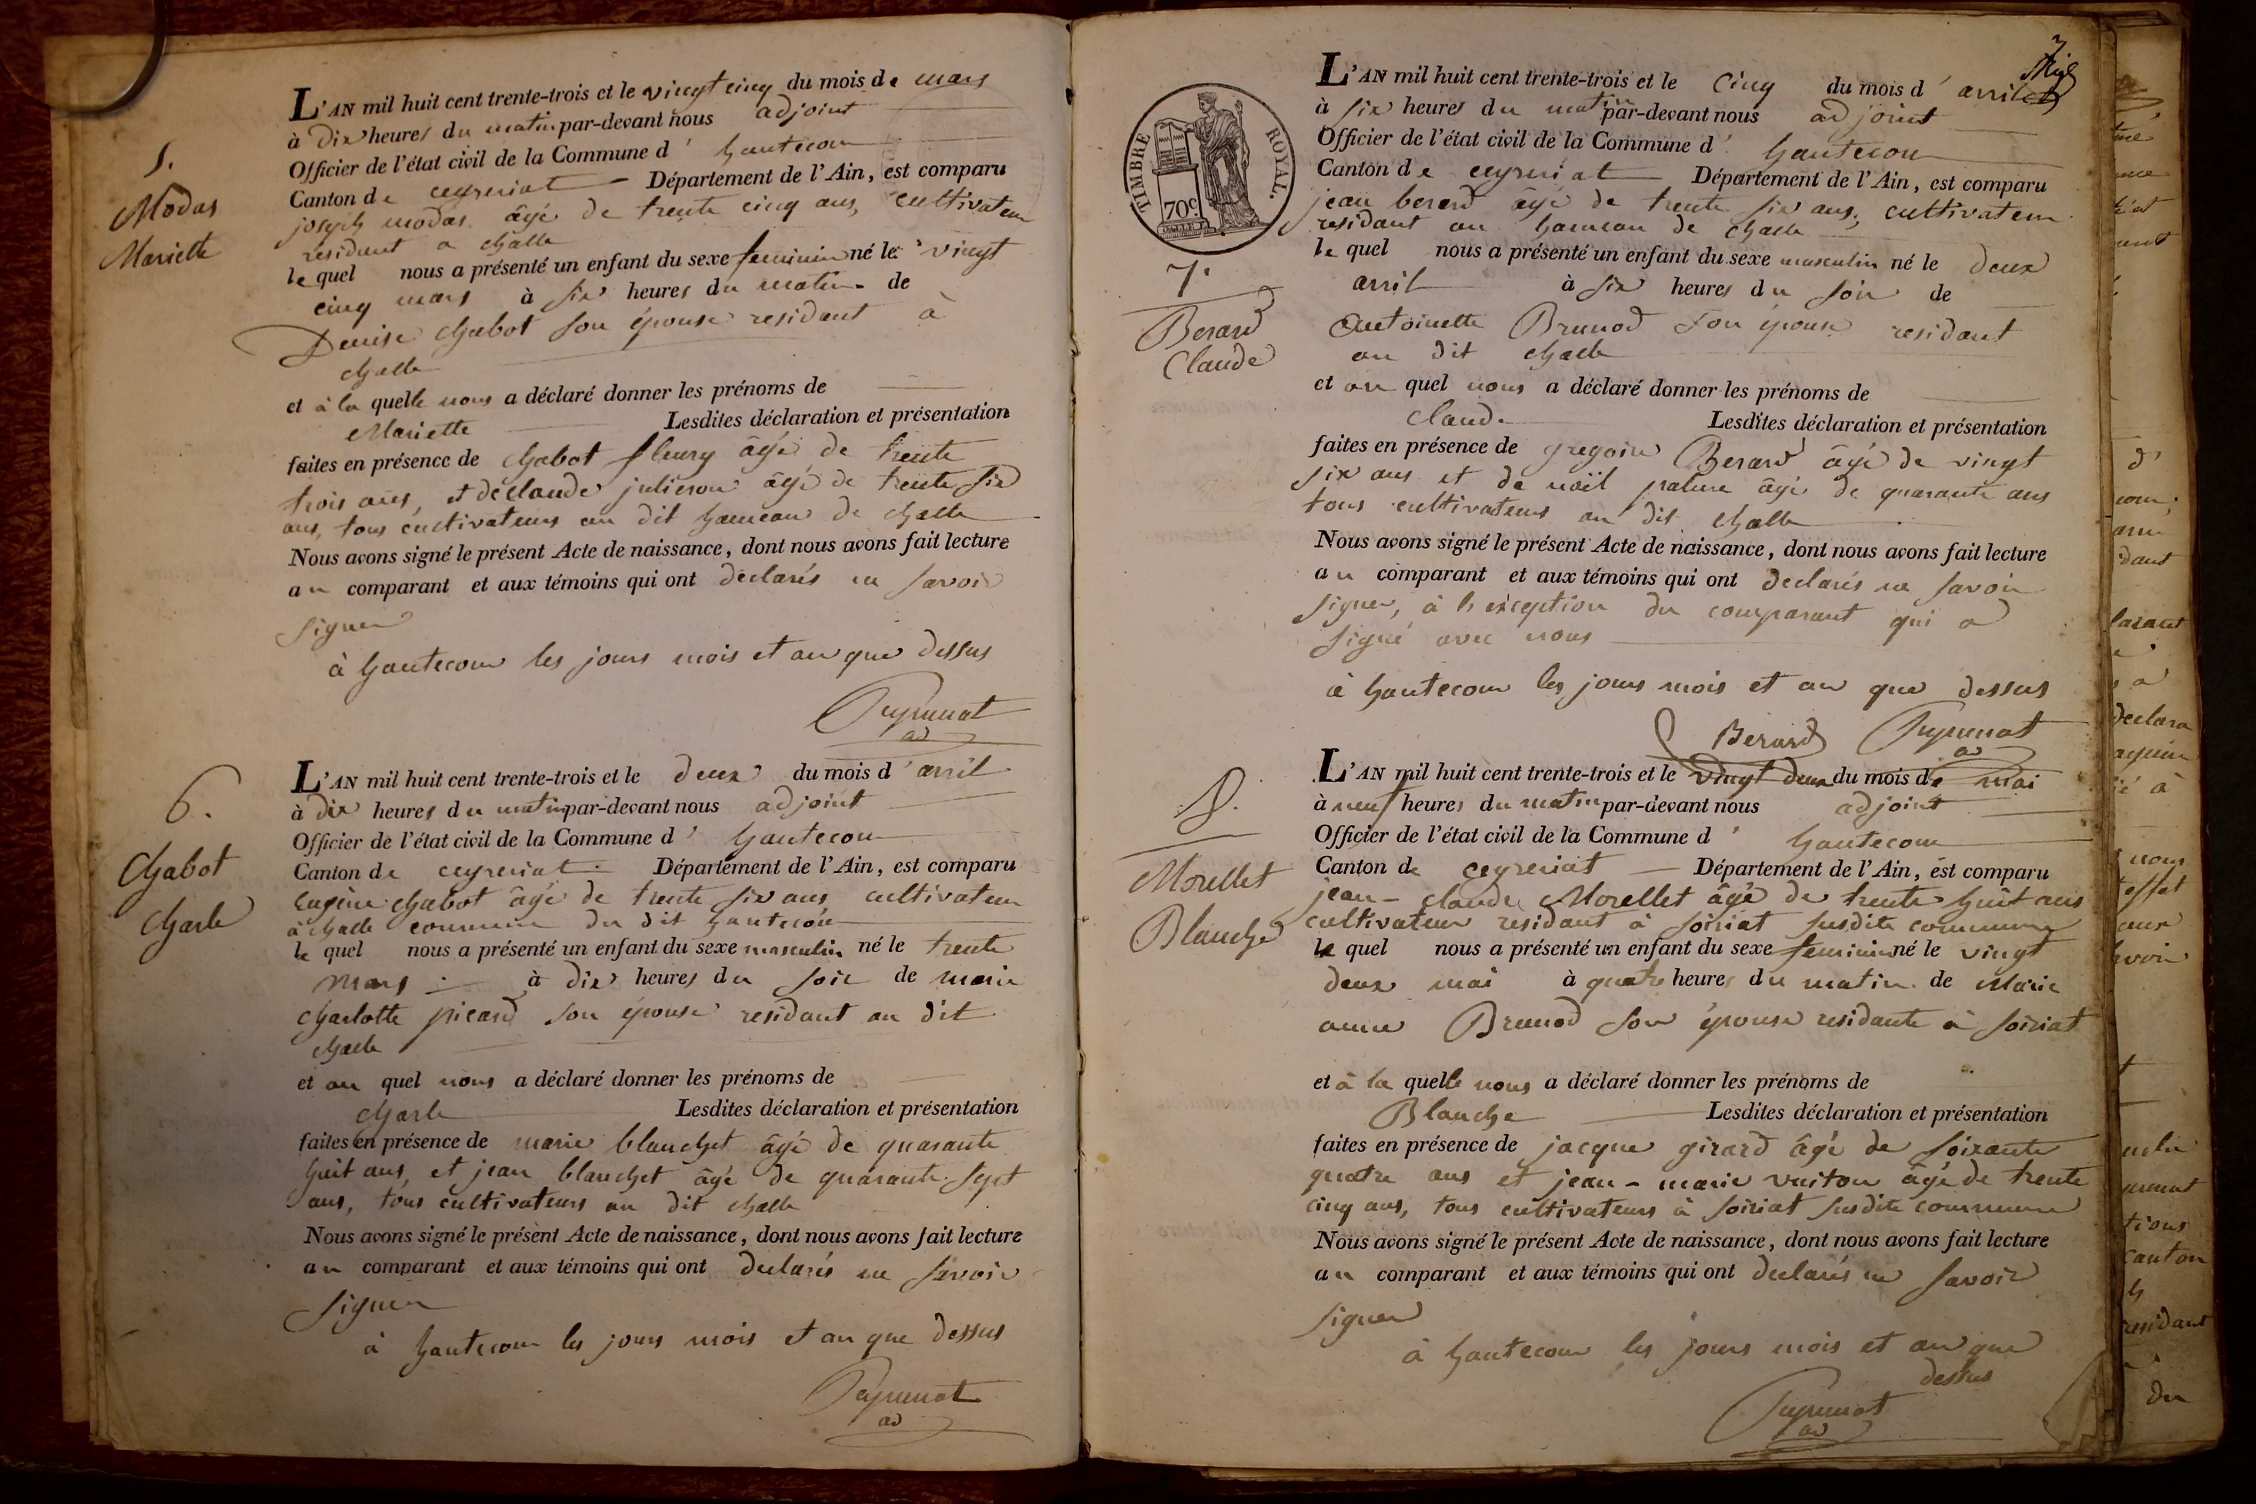 5.
Modas
Mariette
L'AN mil huit cent trente-trois et le vingt cinq du mois de mars
à dix heures du matin par-devant nous adjoint
Officier de l'état civil de la Commune d' hautecour
Canton de ceyzeriat Département de l'Ain, est comparu
joseph modas âgé de trente cinq ans, cultivateur
residant a challe
le quel nous a présenté un enfant du sexe feminin né le vingt
cinq mars à six heures du matin de
Denise chabot son épouse residant à
challe
et à la quelle nous a déclaré donner les prénoms de
Mariette Lesdites déclaration et présentation
faites en présence de chabot fleury âgé de trente
trois ans, et de claude julieron âgé de trente six
ans, tous cultivateurs au dit hameau de challe
Nous avons signé le présent Acte de naissance, dont nous avons fait lecture
au comparant et aux témoins qui ont declarés ne savoir
signer
à hautecour les jours mois et an que dessus
ad
6.
Chabot
Charle
L'AN mil huit cent trente-trois et le deux du mois d'avril
à dix heures du matin par-devant nous adjoint
Officier de l'état civil de la Commune d' hautecour
Canton de ceyzeriat Département de l'Ain, est comparu
Eugène chabot âgé de trente six ans cultivateur
à challe commune du dit hautecour
le quel nous a présenté un enfant du sexe masculin né le trente
mars à dix heures du soir de marie
charlotte picard son épouse residant au dit
challe
et au quel nous a déclaré donner les prénoms de
charle Lesdites déclaration et présentation
faites en présence de marie blanchet âgé de quarante
huit ans, et jean blanchet âgé de quarante sept
ans, tous cultivateurs au dit challe
Nous avons signé le présent Acte de naissance, dont nous avons fait lecture
au comparant et aux témoins qui ont declarés ne savoir
signer
à hautecour les jours mois et an que dessus
ad
7
TIMBRE ROYAL.
70c.
7.
Berard
Claude
L'AN mil huit cent trente-trois et le cinq du mois d'avril
à six heures du matin par-devant nous adjoint
Officier de l'état civil de la Commune d' hautecour
Canton de ceyzeriat Département de l'Ain, est comparu
jean berard âgé de trente six ans, cultivateur
residant au hameau de challe
le quel nous a présenté un enfant du sexe masculin né le deux
avril à six heures du soir de
Antoinette Brunod son épouse residant
au dit challe
et au quel nous a déclaré donner les prénoms de
claude Lesdites déclaration et présentation
faites en présence de gregoire Berard âgé de vingt
six ans et de noël âgé de quarante ans
tous cultivateurs au dit challe
Nous avons signé le présent Acte de naissance, dont nous avons fait lecture
au comparant et aux témoins qui ont declarés ne savoir
signer, à l'exception du comparant qui a
signé avec nous
à hautecour les jours mois et an que dessus
Berard
ad
8.
Morellet
Blanche
L'AN mil huit cent trente-trois et le vingt deux du mois de mai
à neuf heures du matin par-devant nous adjoint
Officier de l'état civil de la Commune d' hautecour
Canton de ceyzeriat Département de l'Ain, est comparu
jean-claude Morellet âgé de trente huit ans
cultivateur residant à soiriat susdite commune
le quel nous a présenté un enfant du sexe feminin né le vingt
deux mai à quatre heures du matin de Marie
anne Brunod son épouse residante à soiriat
et à la quelle nous a déclaré donner les prénoms de
Blanche Lesdites déclaration et présentation
faites en présence de jacque girard âgé de soixante
quatre ans et jean-marie vuiton âgé de trente
cinq ans, tous cultivateurs à soiriat susdite commune
Nous avons signé le présent Acte de naissance, dont nous avons fait lecture
au comparant et aux témoins qui ont declarés ne savoir
signer
à hautecour les jours mois et an que
dessus
ad